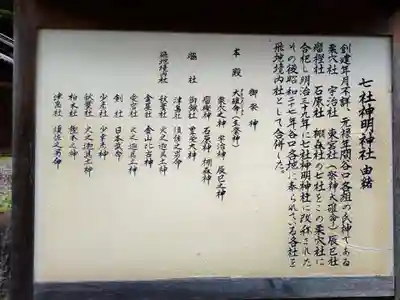 七社神明神社 由緒
創建年月不詳、元禄年間谷口各組の氏神である
栗穴社 宇治社 東宮社(祭神大確命)辰巳社
瘤樫社 石原社 棚森社の七社をこの栗穴社に
合祀し明治三十九年に七社神明神社に改称された
その後昭和二十七年谷口各地に奉られている各社を
飛地境内社として合併した。
御祭神
本殿 大碓命(主祭神)
栗穴之神 宇治神 辰巳之神
瘤樫神 石原神 棚森神
脇社 御鍬社 豊受大神
津島社 須佐之男命
飛地境内社 秋葉社 火之迦具土神
金屋社 金山比古神
愛宕社 火之迦具土神
剣社 日本武命
少彦社 少彦名神
秋葉社 火之迦具土神
柏木社 樫木之神
津島社 須佐之男命